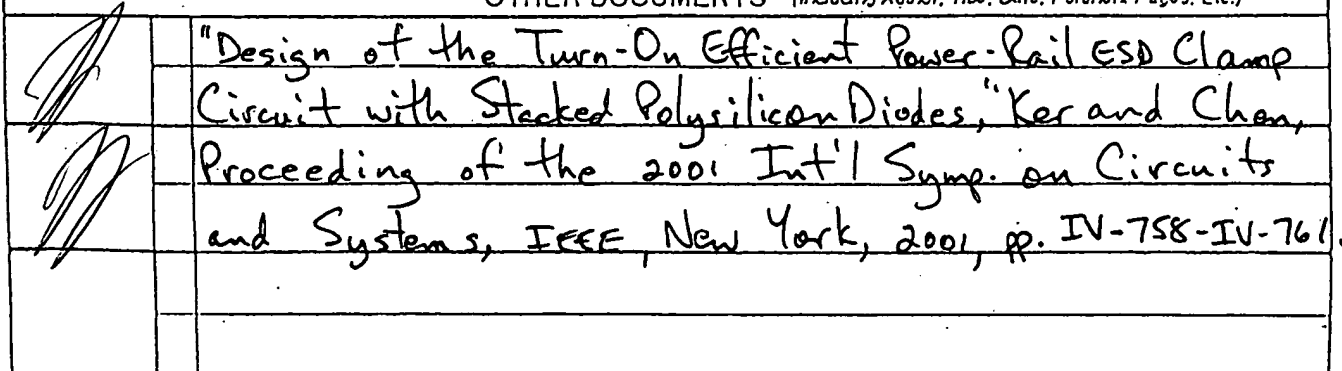 OTHER DOCUMENTS (Including Author, Title, Date, Pertinent Pages, Etc.)
"Design of the Turn-On Efficient Power-Rail ESD Clamp
Circuit with Stacked Polysilicon Diodes," Ker and Chen,
Proceeding of the 2001 Int'l Symp. on Circuits
and Systems, IEEE, New York, 2001, pp. IV-758-IV-761.